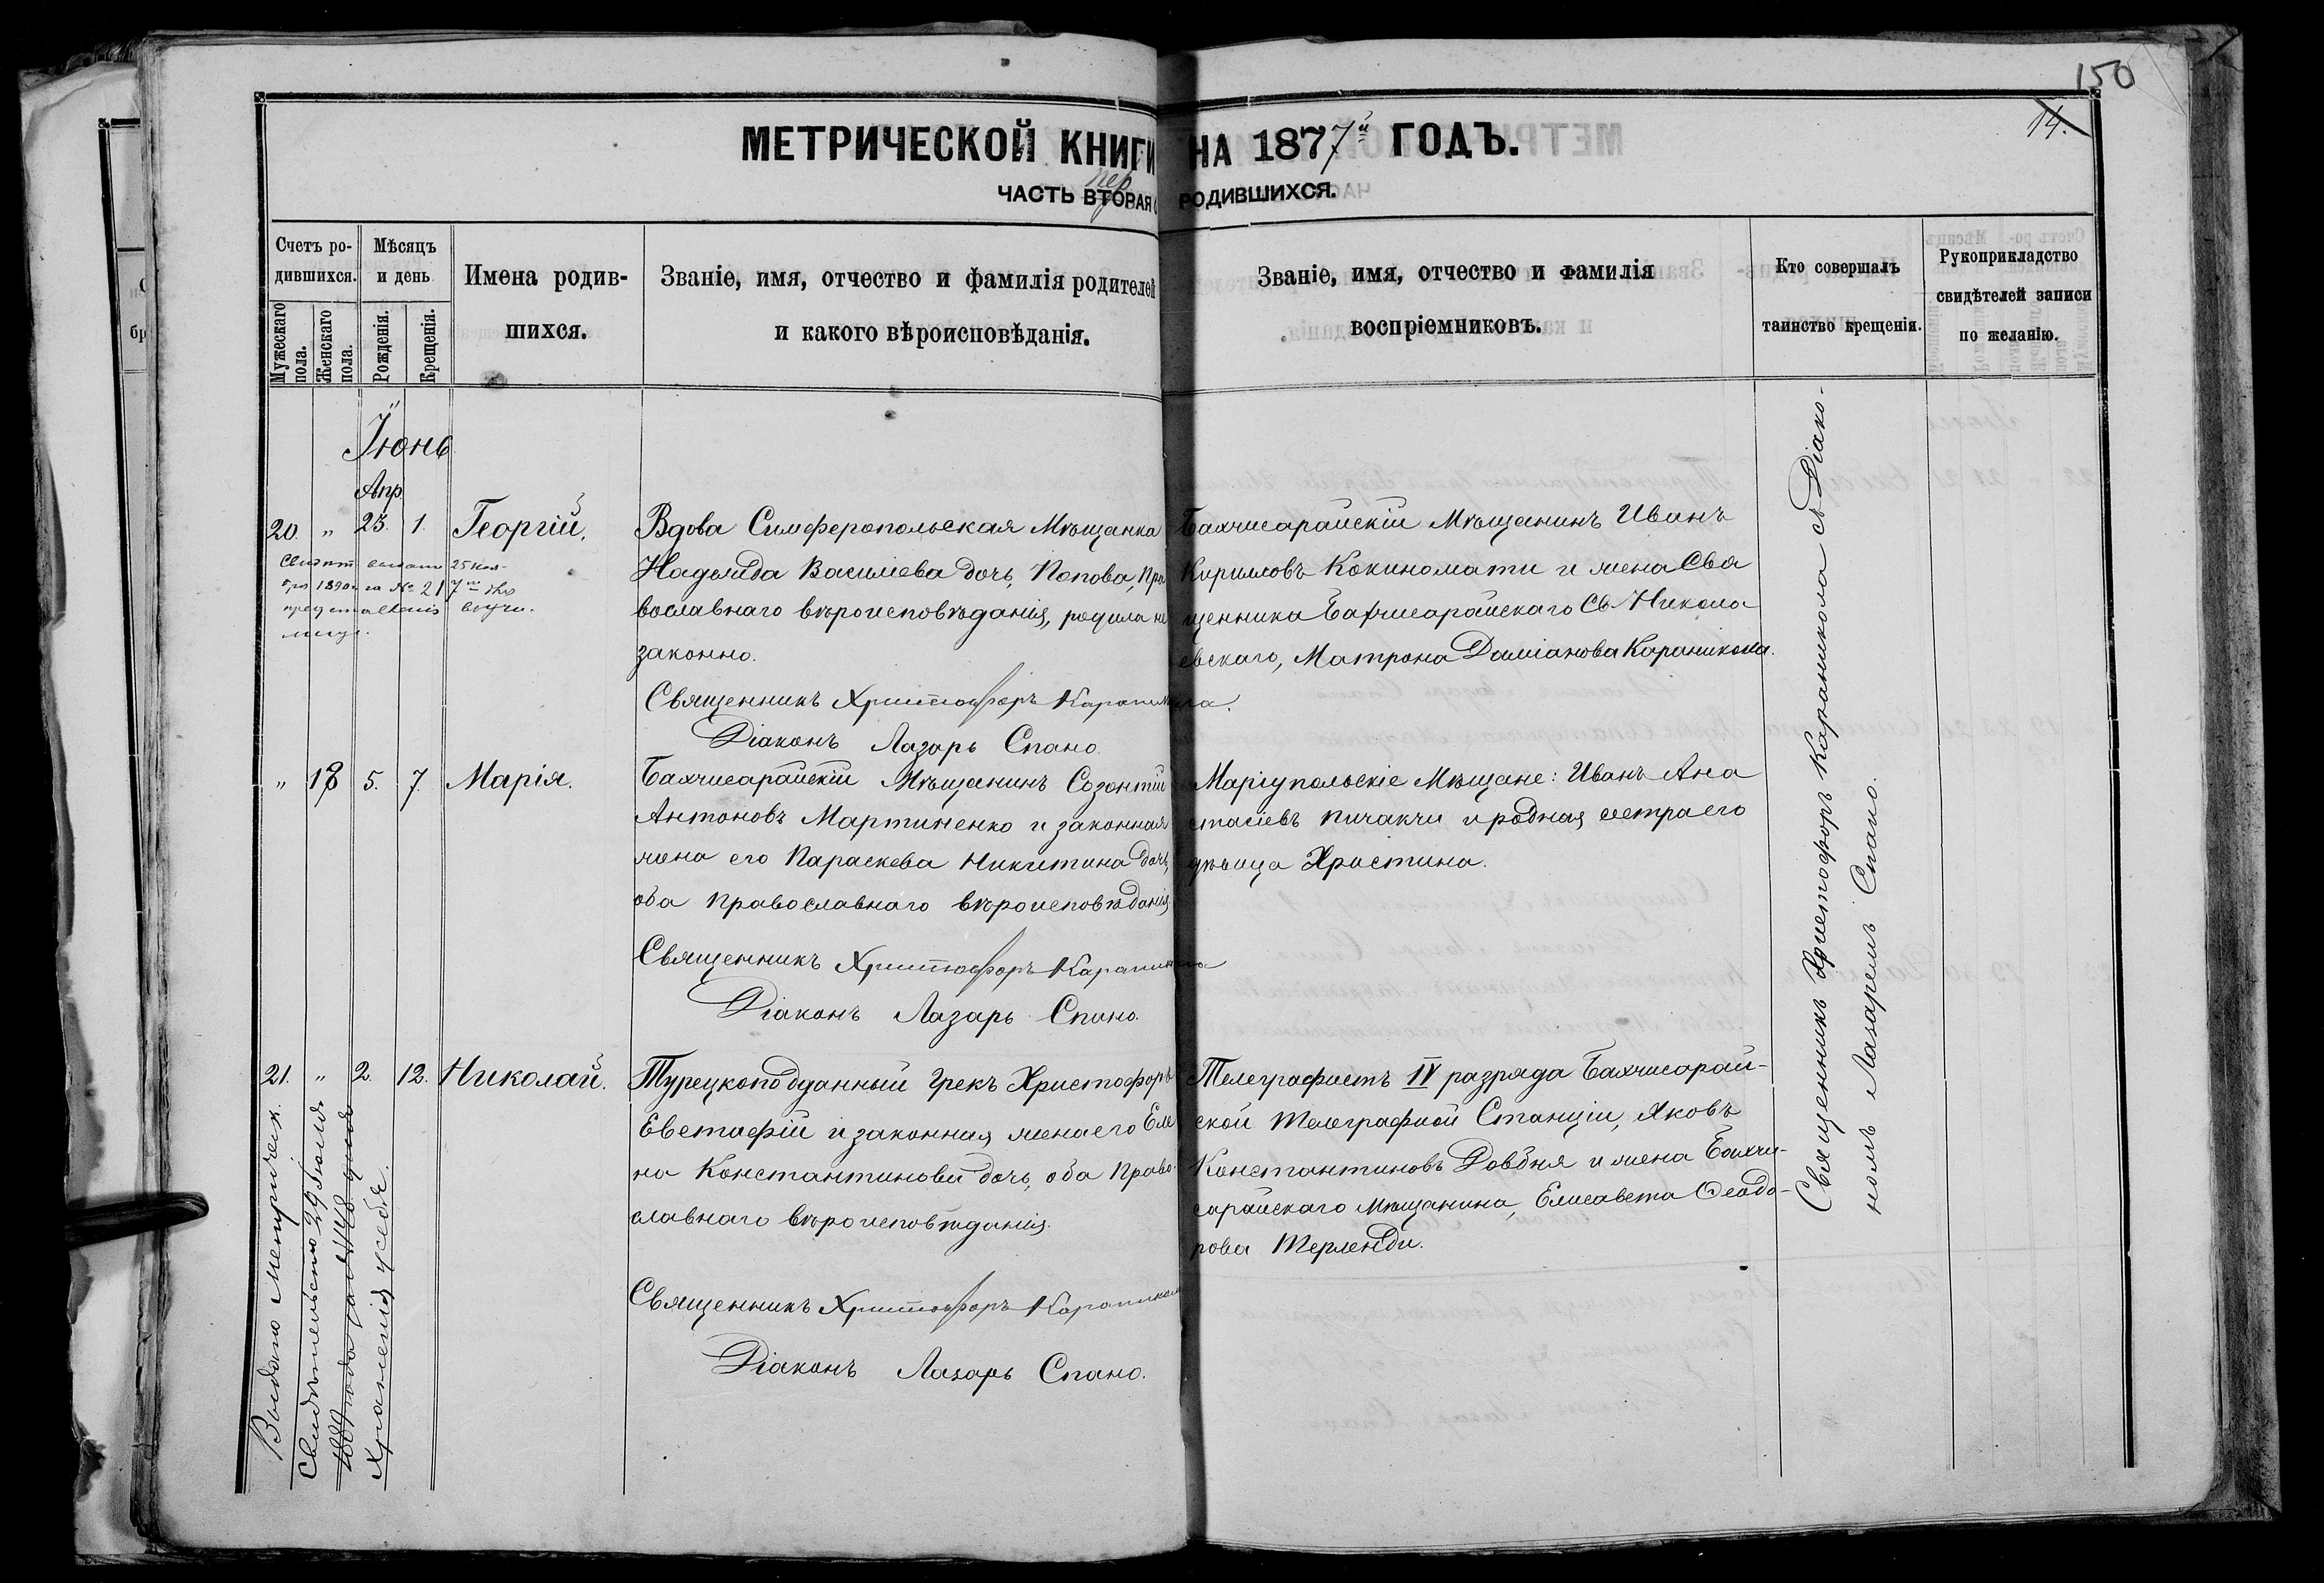 150
14.
МЕТРИЧЕСКОЙ КНИГИ НА 1877й ГОДЪ.
пер
ЧАСТЬ ВТОРАЯ О РОДИВШИХСЯ.
Счетъ ро-
дившихся.
Мужескаго пола.
Женскаго пола.
Мѣсяцъ
и день
Рожденія.
Крещенія.
Имена родив-
шихся.
Званіе, имя, отчество и фамилія родителей
и какого вѣроисповѣданія.
Званіе, имя, отчество и фамилія
воспріемниковъ.
Кто совершалъ
таинство крещенія.
Рукоприкладство
свидѣтелей записи
по желанію.
Іюнь
Апр.
20. " 25. 1. Георгій.
Вдова Симферопольская Мѣщанка
Надежда Василіева дочь, Попова, Пра
вославнаго вѣроисповѣданія, родила не
законно.
Священникъ Христофоръ Караникола.
Діаконъ Лазарь Спано.
Бахчисарайскій Мѣщанинъ Иванъ
Кирилловъ Кокиномати и жена Свя
щенника Бахчисарайскаго Св. Никола
евскаго, Матрона Даміанова Караникола.
25
1890 за № 217
" 18 5. 7. Марія.
Бахчисарайскій Мѣщанинъ Созонтій
Антоновъ Мартиненко и законная
жена его Параскева Никитина дочь,
оба Православнаго вѣроисповѣданія
Священникъ Христофоръ Караникола
Діаконъ Лазарь Спано.
Маріупольскіе Мѣщане: Иванъ Ана
стасіевъ Пичакчи и родная сестра его
дѣвица Христина.
21. " 2. 12. Николай.
Турецкоподданный Грекъ Христофоръ
Евстафій и законная жена его Еле
на Константинова дочь, оба Право-
славнаго вѣроисповѣданія.
Священникъ Христофоръ Караникола
Діаконъ Лазарь Спано.
Телеграфистъ IV разряда Бахчисарай-
ской Телеграфной Станціи, Яковъ
Константиновъ Довбня и жена Бахчи-
сарайскаго Мѣщанина, Елисавета Ѳеодо-
рова Терленди.
Выдано Метрическ.
Свидѣтельство 29 Іюля
года за № 148
Храненія у себя.
Священникъ Христофоръ Караникола съ Діако-
номъ Лазаремъ Спано.